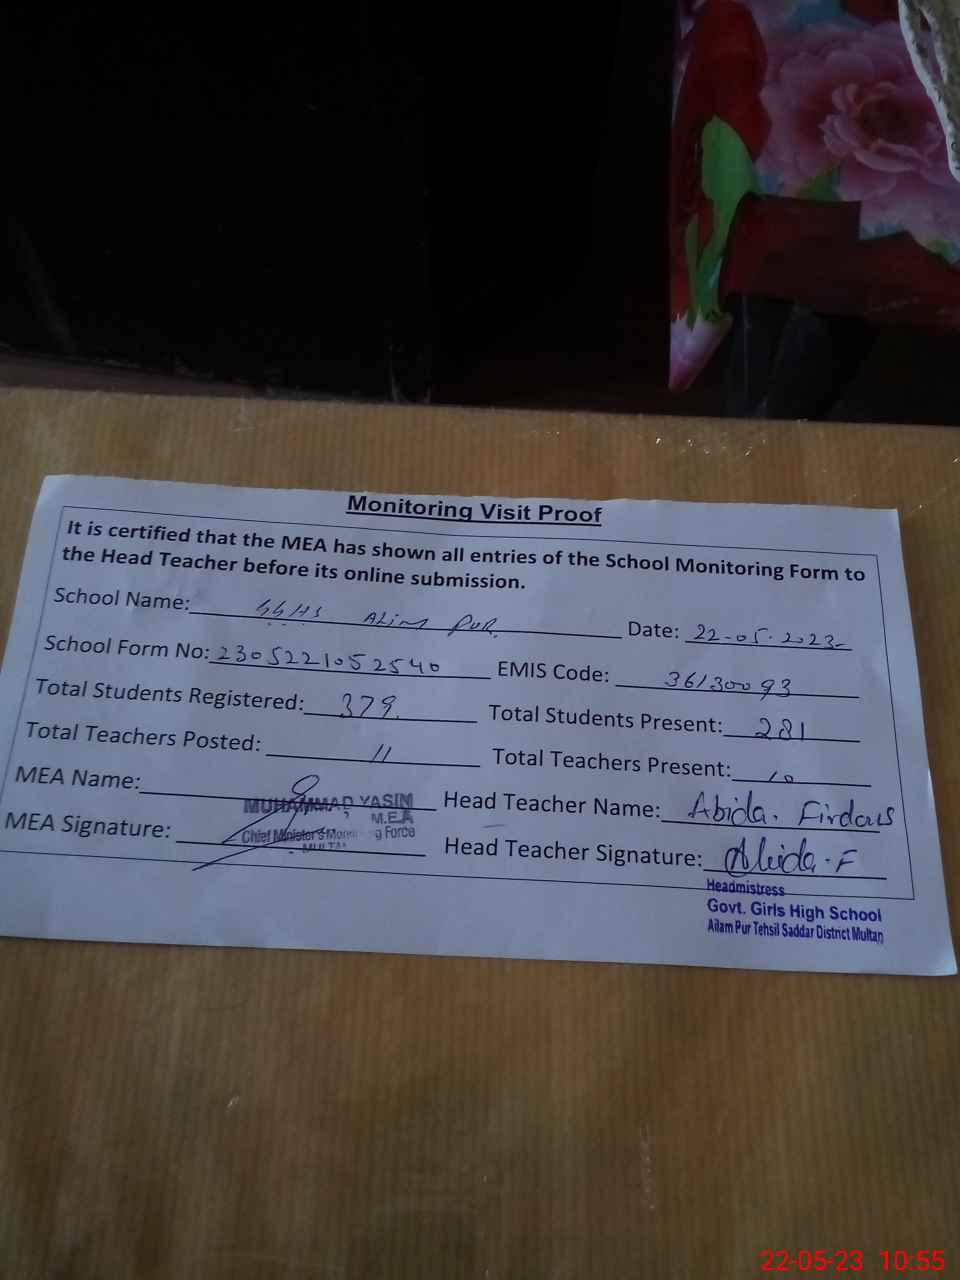 Monitoring Visit Proof
It is certified that the MEA has shown all entries of the School Monitoring Form to
the Head Teacher before its online submission.
School Name: GGHS ALIM PUR. Date: 22-05-2023
School Form No: 2305221052540 EMIS Code: 36130093
Total Students Registered: 379. Total Students Present: 281
Total Teachers Posted: 11 Total Teachers Present: 10
MEA Name: Head Teacher Name: Abida. Firdaus
MUHAMMAD YASIN
M.E.A
Chief Minister's Monitoring Force
MULTAN
MEA Signature: Head Teacher Signature: Abida.F
Headmistress
Govt. Girls High School
Ailam Pur Tehsil Saddar District Multan
22-05-23 10:55